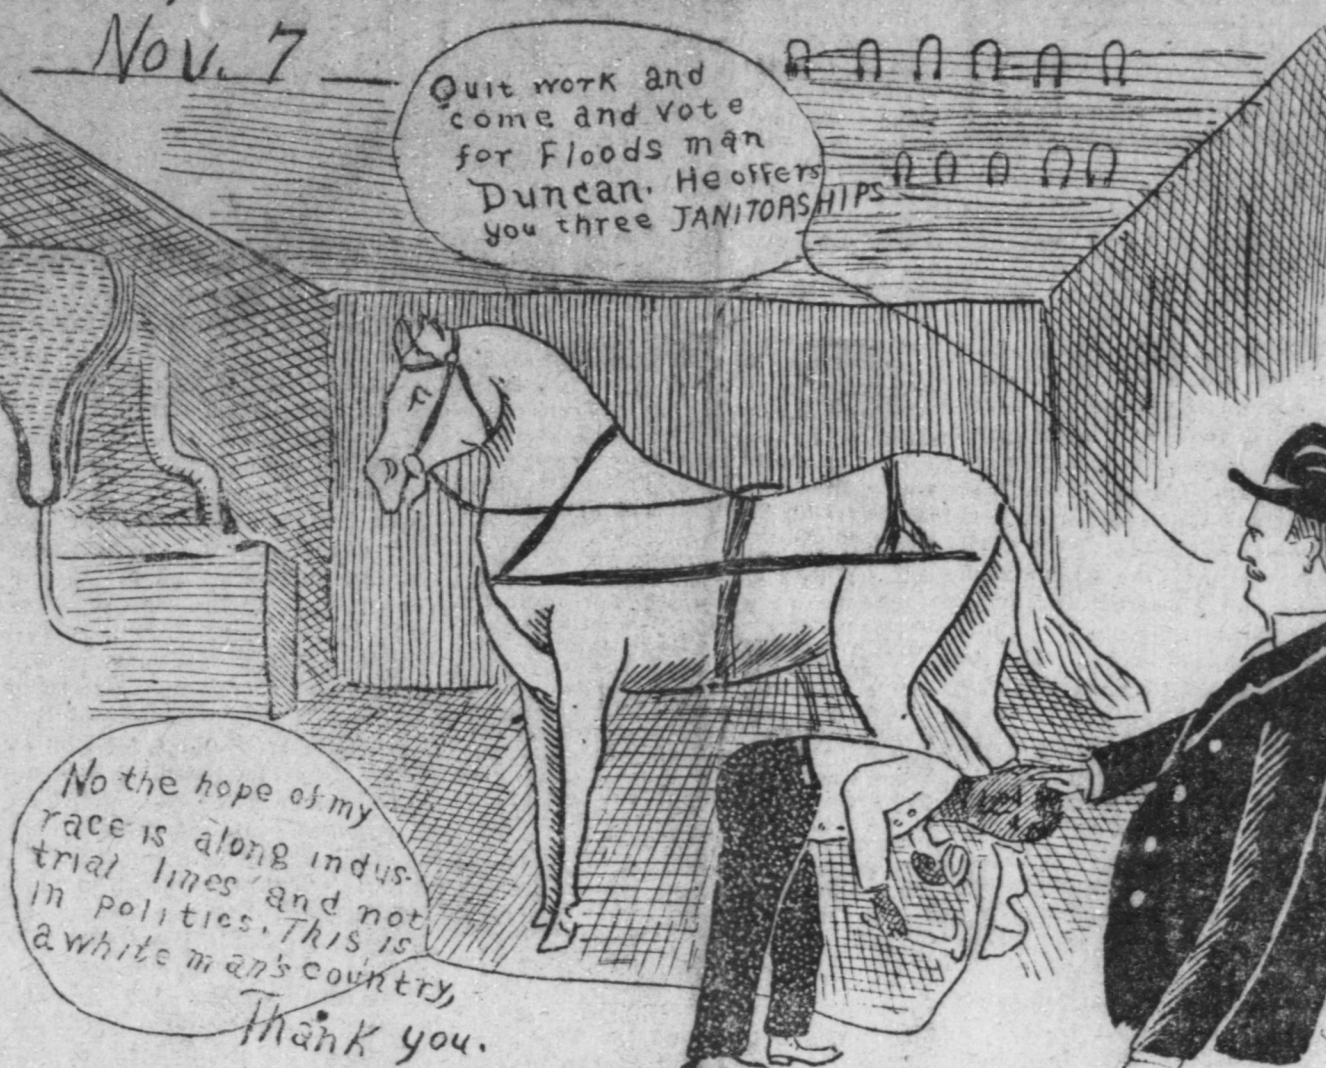 Nov. 7
Quit work and
come and vote
for Floods man
Duncan. He offers
you three JANITORSHIPS
No the hope of my
race is along indus-
trial lines and not
in politics. This is
a white man's country,
Thank you.